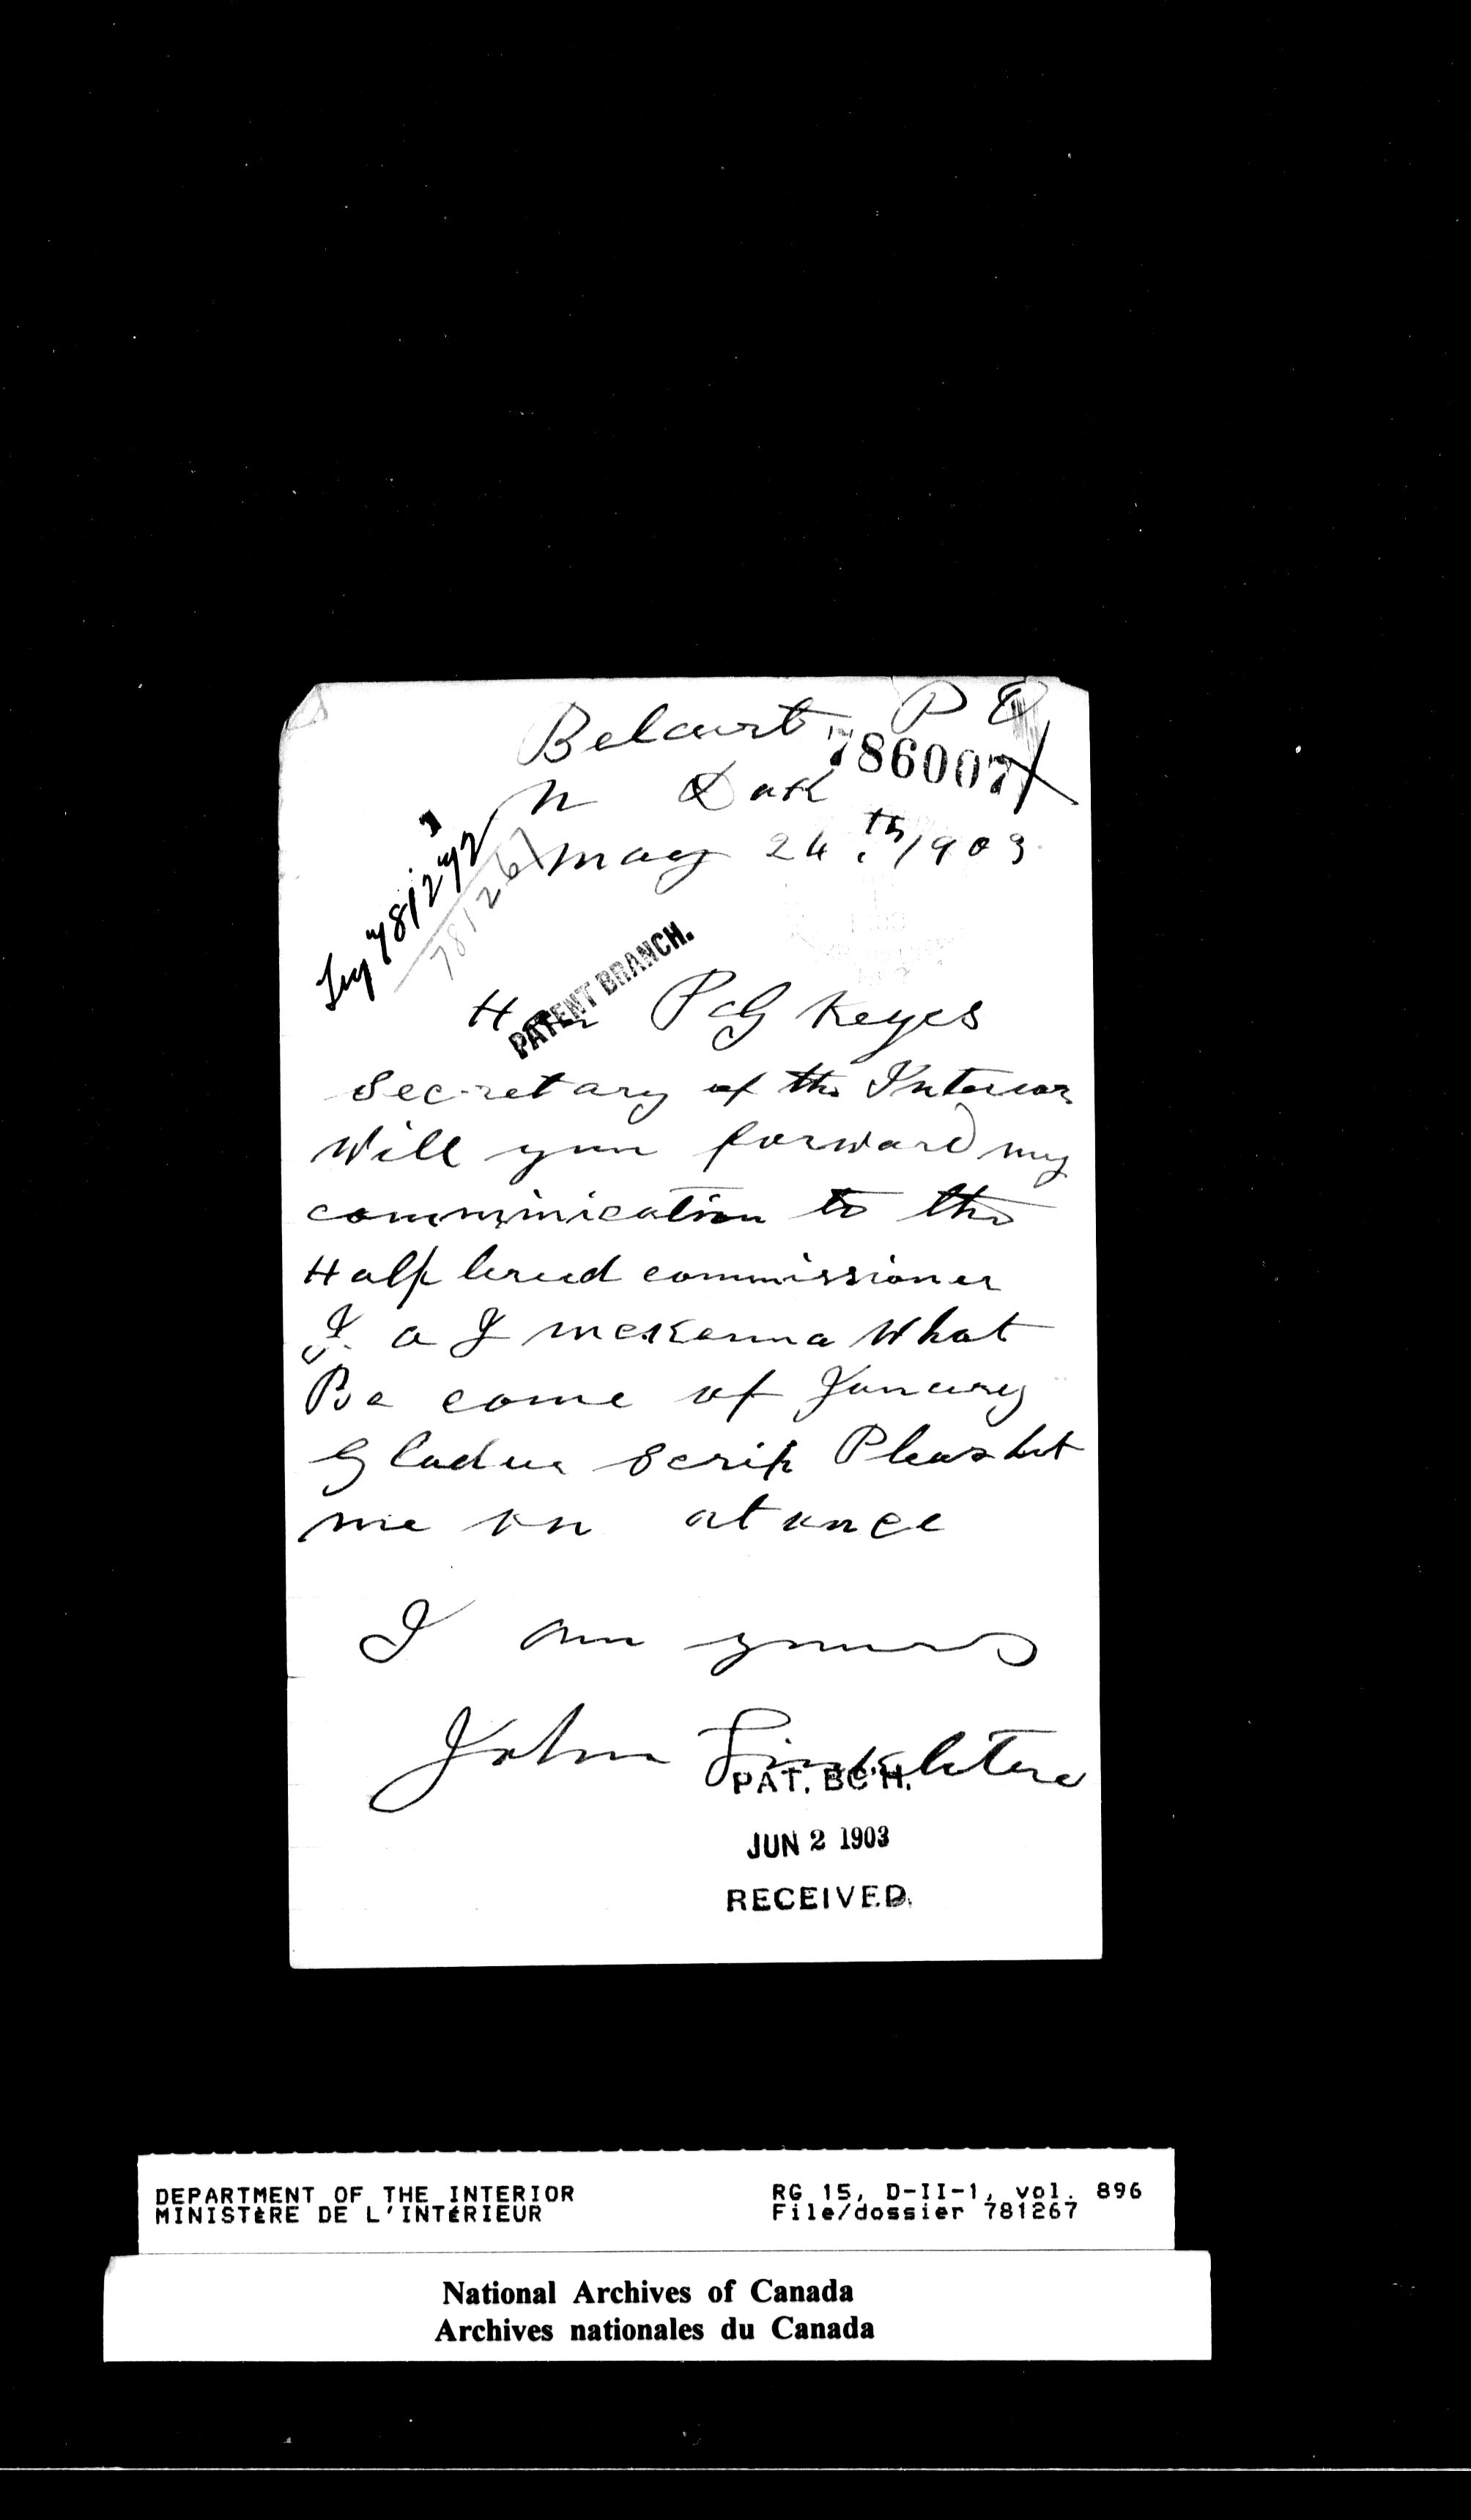 Belcurt P O
786007
N Dak
May 24.th 1903
781272
781267
PATENT BRANCH.
Hon P G Keyes
Secretary of the Interior
Will you forward my
communication to the
Half breed commissioner
J. a J McKenna What
Be come of January
Gladue Scrip Pleas let
me on at once
I am yours
John
PAT. BCH.
JUN 2 1903
RECEIVED.
DEPARTMENT OF THE INTERIOR RG 15, D-II-1, vol. 896
MINISTÈRE DE L'INTÉRIEUR File/dossier 781267
National Archives of Canada
Archives nationales du Canada